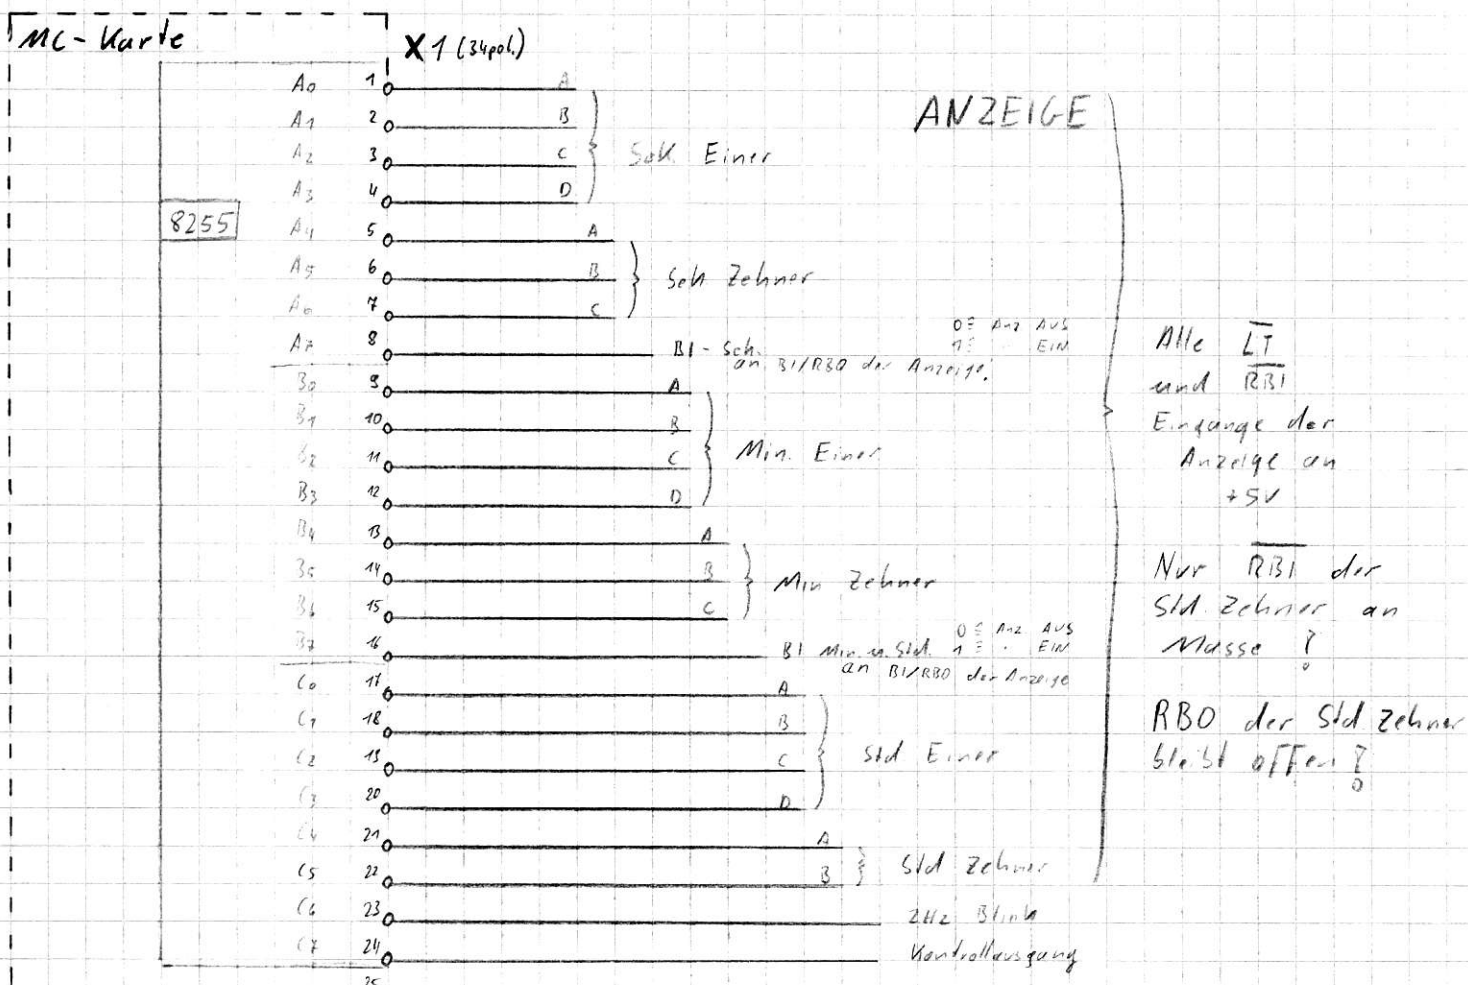 MC-Karte
X1 (34pol.)
ANZEIGE
8255
A0 1 A
A1 2 B
A2 3 C
A3 4 D
Sek. Einer
A4 5 A
A5 6 B
A6 7 C
Sek Zehner
A7 8 BI-Sek. 0≙ Anz AUS
1≙ " EIN
an BI/RBO der Anzeige!
B0 9 A
B1 10 B
B2 11 C
B3 12 D
Min. Einer
B4 13 A
B5 14 B
B6 15 C
Min Zehner
B7 16 BI Min. u. Std. 0≙ Anz AUS
1≙ " EIN
an BI/RBO der Anzeige
C0 17 A
C1 18 B
C2 19 C
C3 20 D
Std Einer
C4 21 A
C5 22 B
Std Zehner
C6 23 2Hz Blink
C7 24 Kontrollausgang
25
Alle LT
und RBI
Eingänge der
Anzeige an
+5V
Nur RBI der
Std. Zehner an
Masse !
RBO der Std Zehner
bleibt offen !